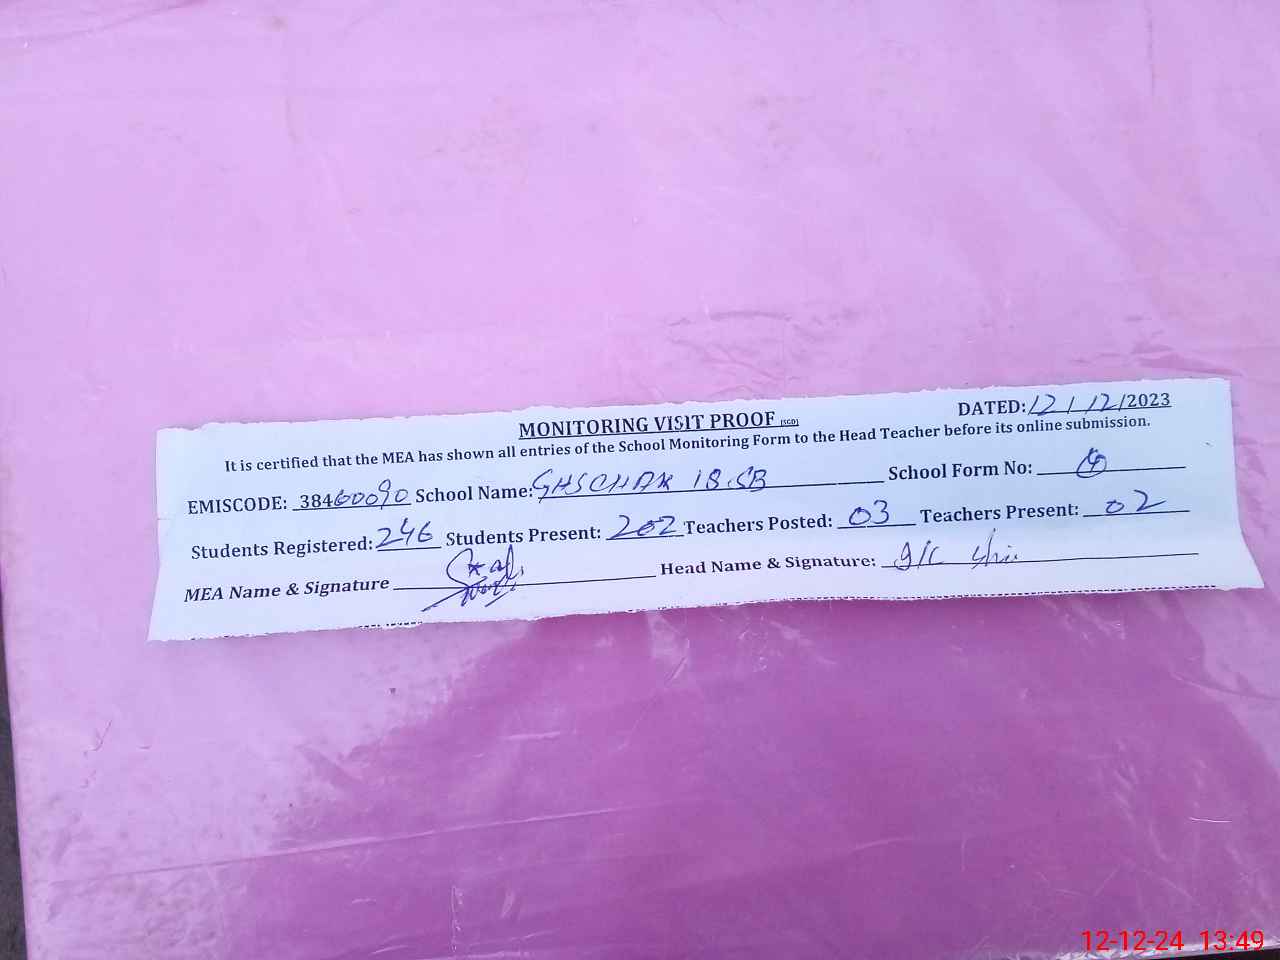 MONITORING VISIT PROOF (SGD)
DATED: 12/12/2023
It is certified that the MEA has shown all entries of the School Monitoring Form to the Head Teacher before its online submission.
EMISCODE: 38460090 School Name: GHSCHAK 18.SB School Form No:
Students Registered: 246 Students Present: 202 Teachers Posted: 03 Teachers Present: 02
MEA Name & Signature Head Name & Signature: I/C
12-12-24 13:49